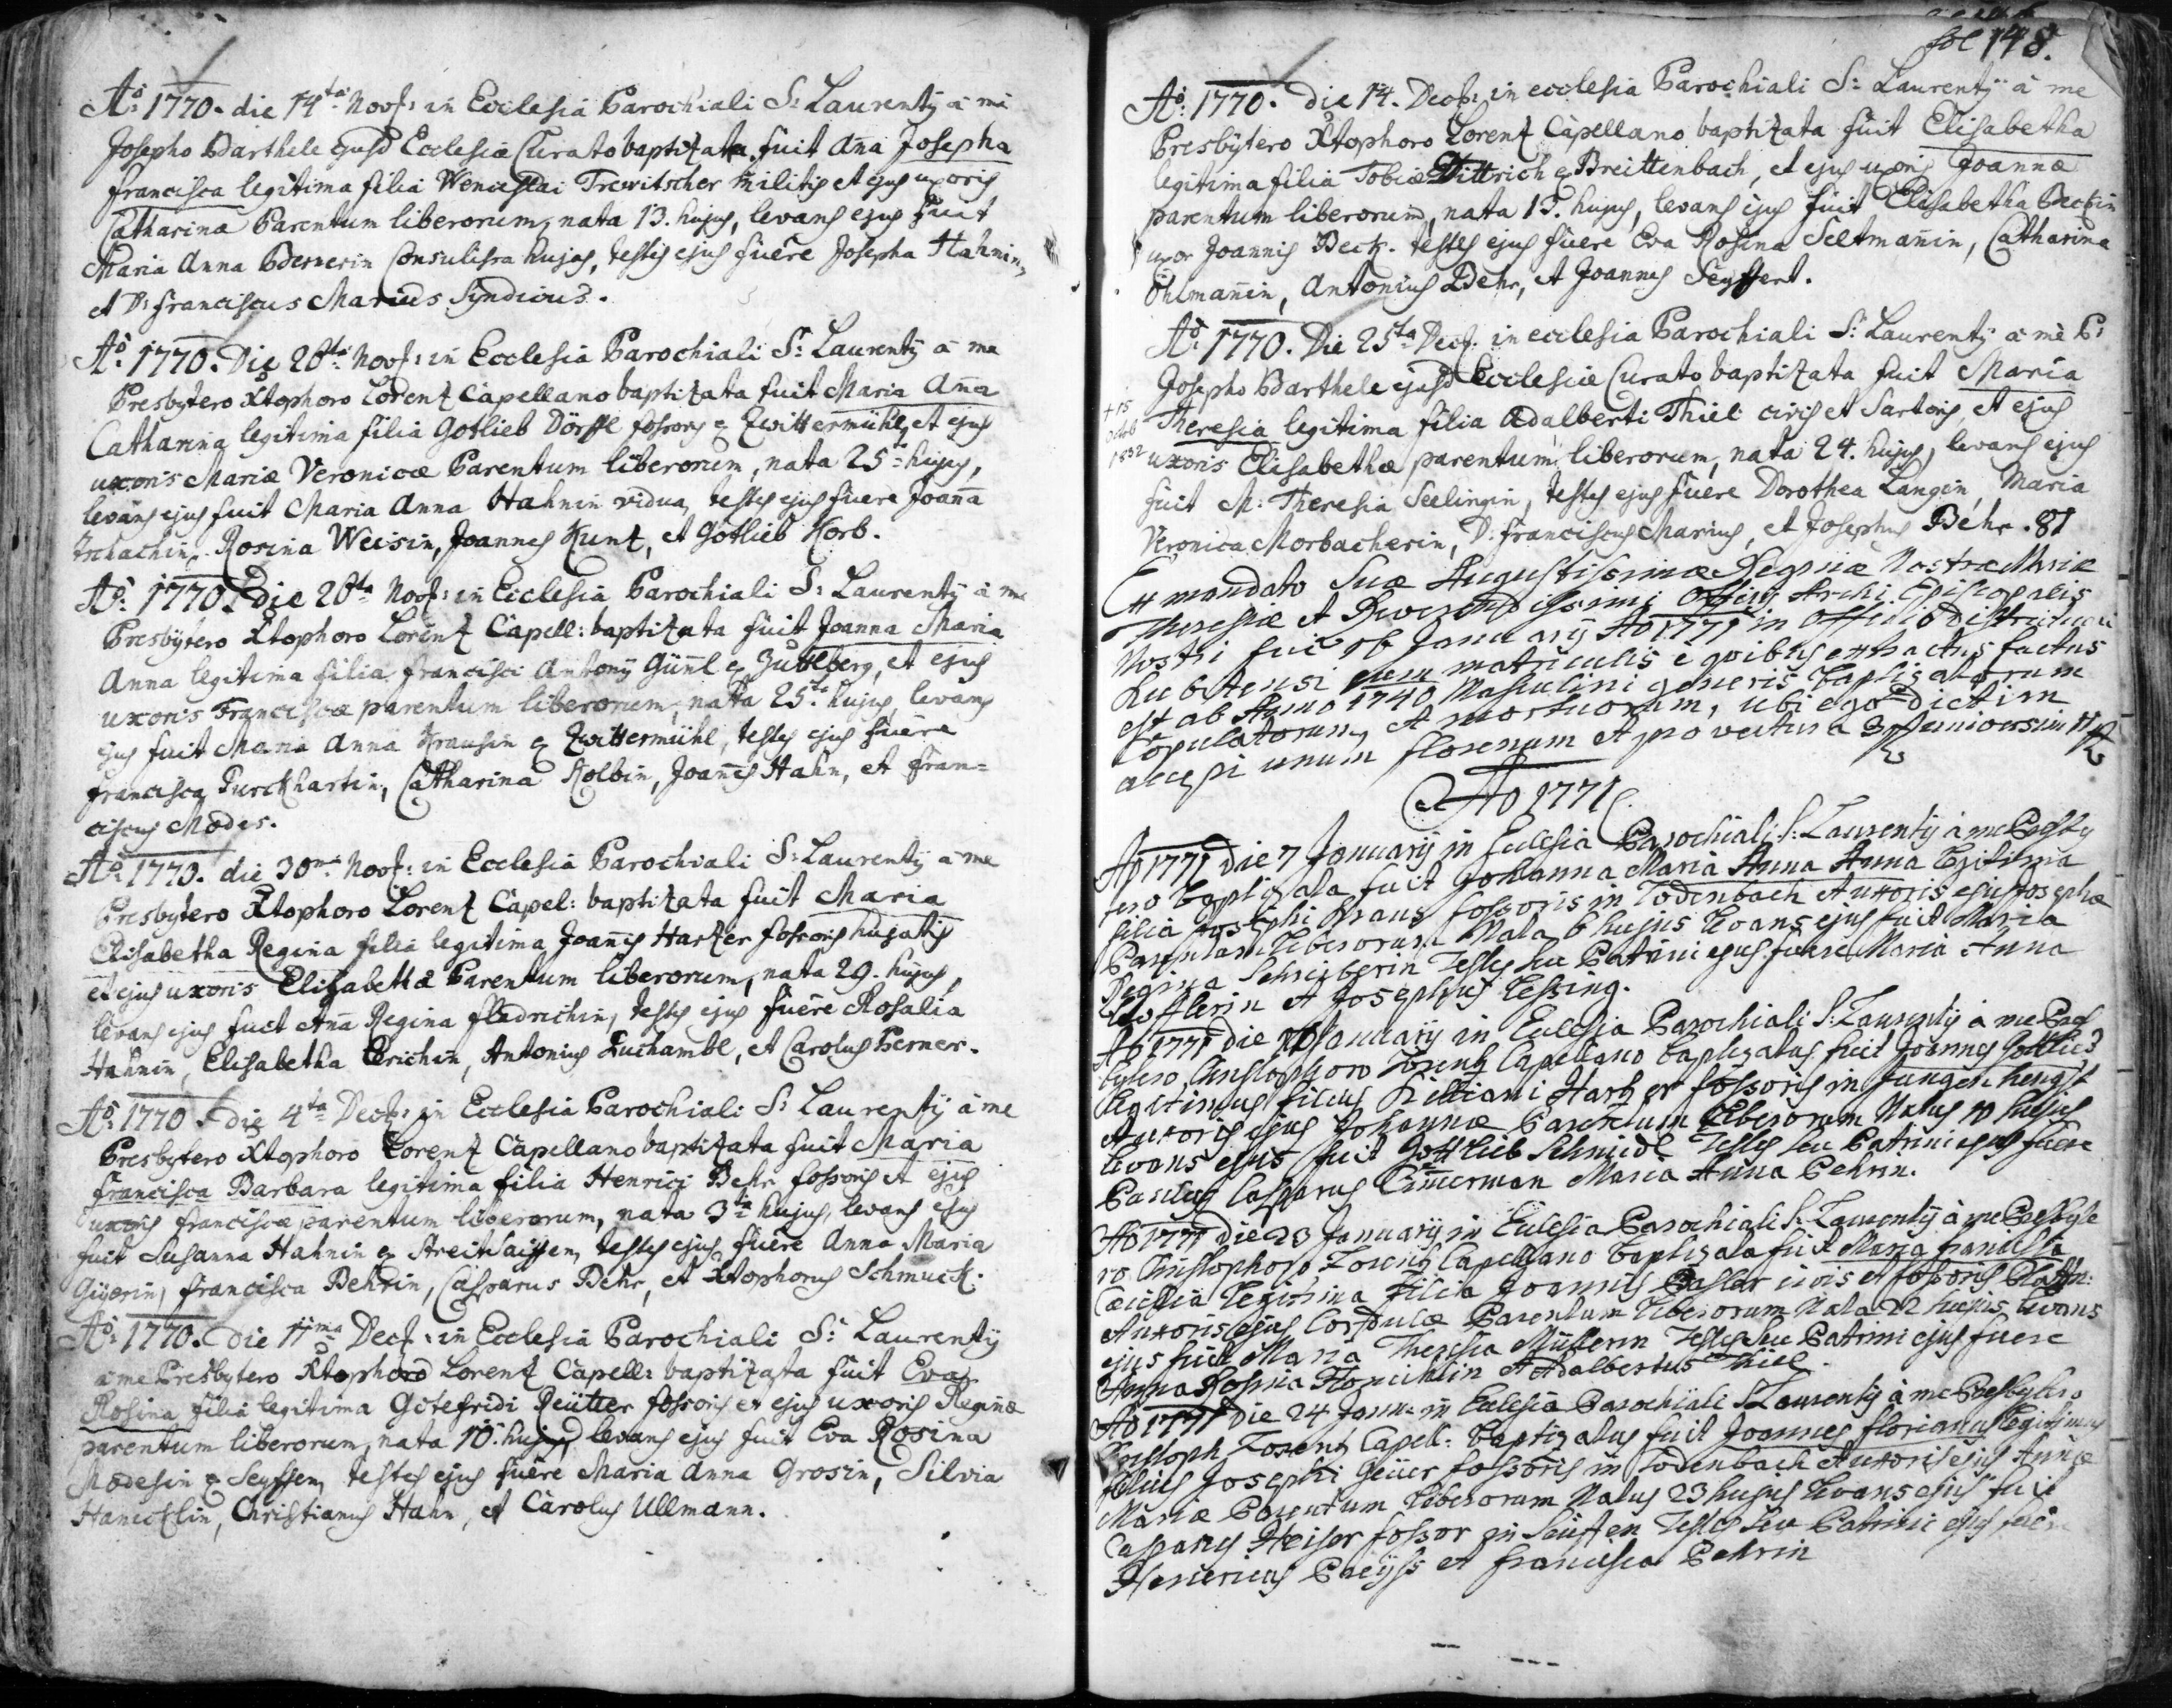 Aō: 1770. die 14ta Novf: in Ecclesia Parochiali S: Laurentÿ à me
Josepho Barthele ejusd Ecclesiæ Curato baptizata fuit Aña Josepha
Francisca legitima filia Wenceslai Trewitscher militis et ejus uxoris
Catharina Parentum liberorum, nata 13. hujus, levans ejus fuit
Maria Anna Consulissa hujas, testes ejus fuêre Josepha Hahnin,
et D: Franciscus Marius Syndicus.
Aō: 1770. Die 26ta Novf: in Ecclesia Parochiali S: Laurentÿ à me
Presbytero Xtophoro Lorentz Capellano baptizata fuit Maria Aña
Catharina legitima filia Gotlieb Dörffl fossoris ex Zwittermühl, et ejus
uxoris Mariæ Veronicæ Parentum liberorum, nata 25ta hujus,
levans ejus fuit Maria Anna Hahnin vidua, testes ejus fuere Joaña
Rosina Weisin, Joannes Kuntz, et Gotlieb Korb.
Aō: 1770. die 26ta Novf: in Ecclesia Parochiali S: Laurentÿ à me
Presbÿtero Xtophoro Lorentz Capell: baptizata fuit Joanna Maria
Anna legitima filia Francisci Antonÿ Güñl ex et ejus
uxoris Franciscæ parentum liberorum, nata 25ta hujus, levans
ejus fuit Maria Anna Krausin ex Zwittermühl, testes ejus fuêre
Francisca Purckhartin, Catharina Kolbin, Joañes Hahn, et Fran=
ciscus Modes.
Aō: 1770. die 30ma Novf: in Ecclesia Parochiali S: Laurentÿ à me
Presbytero Xtophoro Lorentz Capel: baptizata fuit Maria
Elisabetha Regina filia legitima Joañis Hartzer fossoris hujatis
et ejus uxoris Elisabethæ Parentum liberorum, nata 29. hujus,
levans ejus fuit Aña Regina testes ejus fuêre Rosalia
Hahnin, Elisabetha Antonius et Carolus Herner.
Aō: 1770. die 4ta Decf: in Ecclesia Parochiali S: Laurentÿ à me
Presbytero Xtophoro Lorentz Capellano baptizata fuit Maria
Francisca Barbara legitima filia Henrici Behr fossoris et ejus
uxoris Franciscæ parentum liberorum, nata 3tia hujus, levans ejus
fuit Susanna Hahnin ex Streitseiffen, testes ejus fuêre Anna Maria
Güerin, Francisca Behrin, Casparus Behr, et Xtophorus Schmuck.
Aō: 1770. Die 11ma Decf: in Ecclesia Parochiali S: Laurentÿ
à me Presbytero Xtophoro Lorentz Capell: baptizata fuit Eva
Rosina filia legitima Gotefridi Reütter fossoris et ejus uxoris Reginæ
parentum liberorum, nata 10. hujus, levans ejus fuit Eva Rosina
Modesin ex Seyffen, testes ejus fuêre Maria Anna Grosin, Silvia
Hanicklin, Christianus Hahn, et Carolus Ullmann.
fol 148.
Aō: 1770. Die 14. Decf: in ecclesia Parochiali S: Laurentÿ à me
Presbÿtero Xtophoro Lorentz Capellano baptizata fuit Elisabetha
legitima filia Tobiæ Dittrich ex Breittenbach, et ejus uxoris Joannæ
parentum liberorum, nata 13. hujus, levans ejus fuit Elisabetha Beckin
uxor Joannis Beck. testes ejus fuêre Eva Rosina Seltmañin, Catharina
Öhlmañin, Antonius Behr, et Joannes Seyffert.
Aō: 1770. Die 25ta Decf: in ecclesia Parochiali S: Laurentÿ à me P:
Josepho Barthele ejusd Ecclesiæ Curato baptizata fuit Maria
+ 15 Octob 1832
Theresia legitima filia Adalberti Thiel civis et Sartoris, et ejus
uxoris Elisabethæ parentum liberorum, nata 24. hujus, levans ejus
fuit M: Theresia Seelingin, testes ejus fuêre Dorothea Langin, Maria
Veronica Morbacherin, D: Franciscus Marius, et Josephus Behr. 81
Ex mandato Suæ Augustissimæ Reginæ Nostræ Mariæ
Theresiæ et Reverendissimi Officij Archi Episcopalis
Nostri fui 16 Januarij Ao 1771 in officio districtuali
cum matriculis è quibus extractus factus
est ab Anno 1740 Masculini generis Baptizatorum
Copulatorum, et mortuorum, ubi ego dictim
accepi unum florenum et pro vectura 3
Ao 1771
Ao 1771 Die 7 Januarij in Eclesia Parochiali S: Laurentij à me Presby
tero baptizata fuit Johanna Maria Anna Anna legitima
filia Josephi Kraus fossoris in Todenbach et uxoris ejus Josephæ
Parentum liberorum Nata 6 hujus levans ejus fuit Maria
Regina Schreiberin Testes seu Patrini ejus fuere Maria Anna
Löfflerin et Josephus Lessing.
Ao 1771 Die Januarij in Eclesia Parochiali S: Laurentij à me Pres
bytero Christophoro Lorentz Capellano baptizatus fuit Joannes Gottlieb
legitimus filius Killiani Hartzer fossoris in Jungenhengst
et uxoris ejus Johannæ Parentum liberorum Natus 10 hujus
levans ejus fuit Gottlieb Schmidt Testes seu Patrini ejus fuere
Paulus Casparus Cimerman Maria Anna Pehrin.
Ao 1771 Die 23 Januarij in Eclesia Parochiali S: Laurentij à me Presbyte
ro Christophoro Lorentz Capellano baptizata fuit Maria Francisca
Cæcilia legitima filia Joannis civis et fossoris Plattn:
et uxoris ejus Cordulæ Parentum liberorum Nata 22 hujus levans
ejus fuit Maria Theresia Müllerin Testes seu Patrini ejus fuere
Anna Rosina et Adalbertus Thiel.
Ao 1771 Die 24 Janu: in Eclesia Parochiali S: Laurentij à me Presbytero
Christoph Lorentz Capell: baptizatus fuit Joannes Florianus legitimus
filius Josephi Geüer fossoris in Todenbach et uxoris ejus Annæ
Mariæ Parentum liberorum Natus 23 hujus levans ejus fuit
Casparus Heiser fossor in Seiffen Testes seu Patrini ejus fuere
Henericus Preÿss et Francisca Pehrin